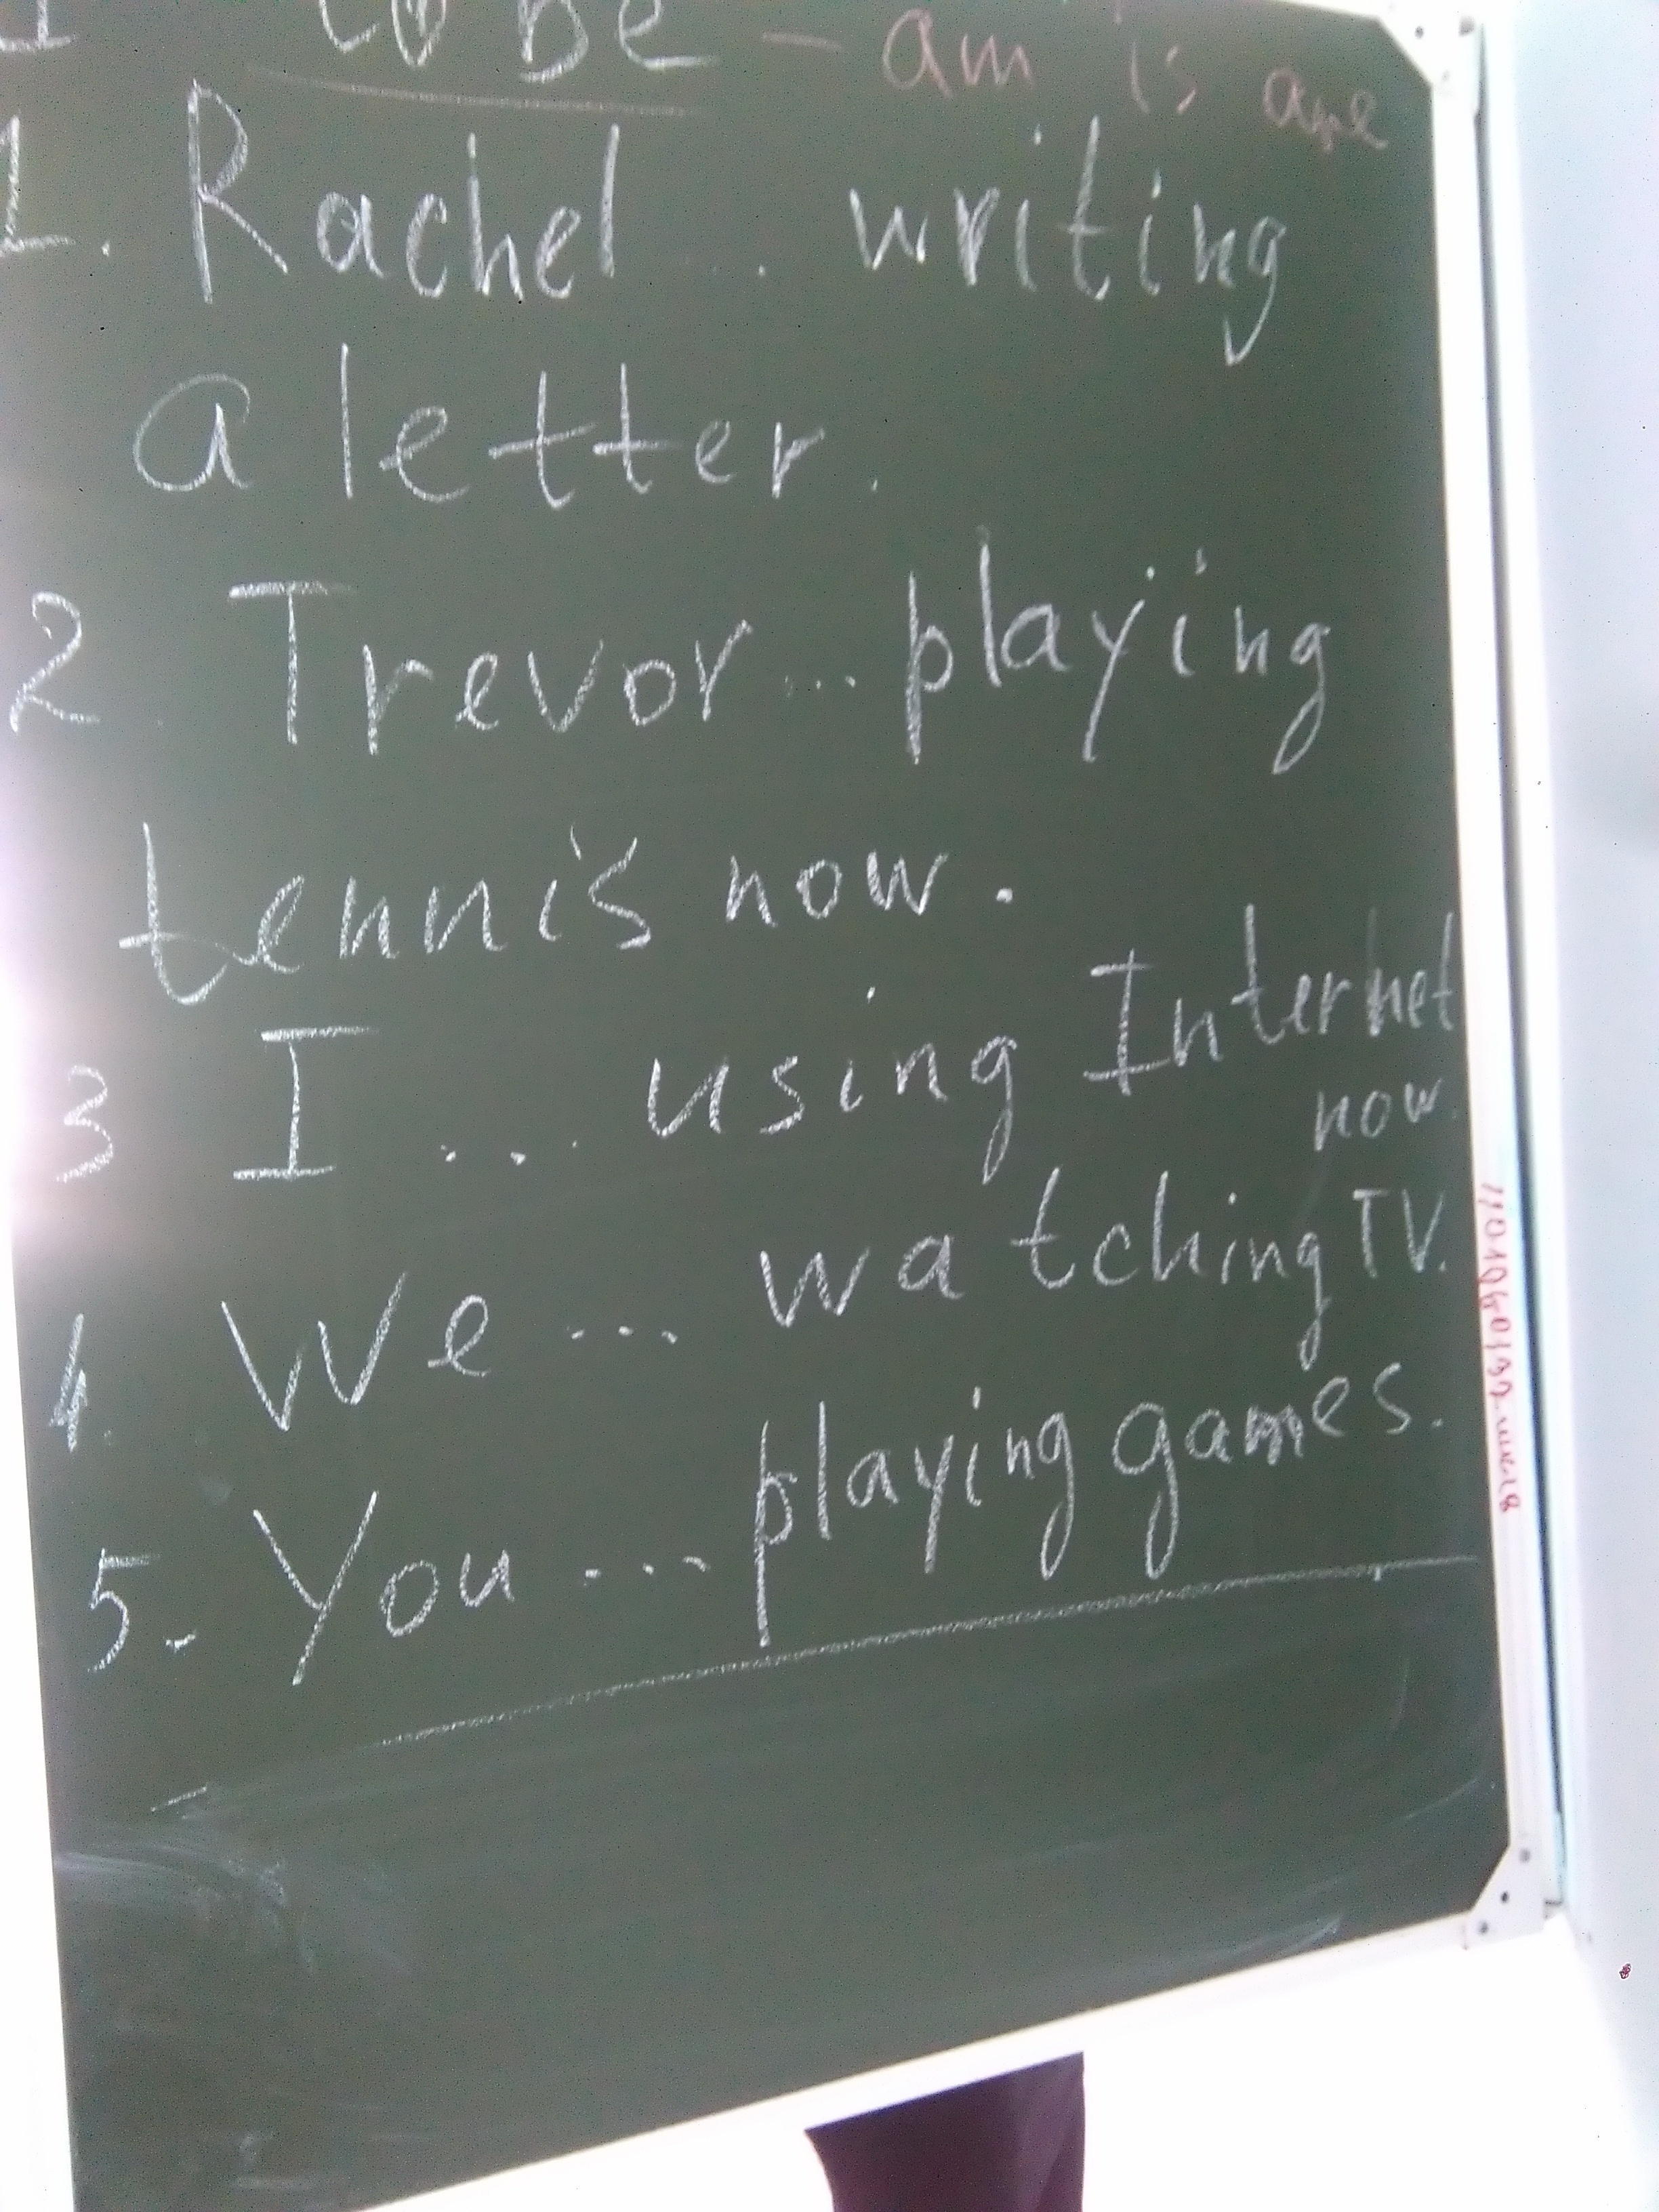 I to be - am is are
1. Rachel ... writing
a letter.
2. Trevor ... playing
tennis now.
3 I ... using Internet
now.
4. We ... watching TV.
5. You ... playing games.